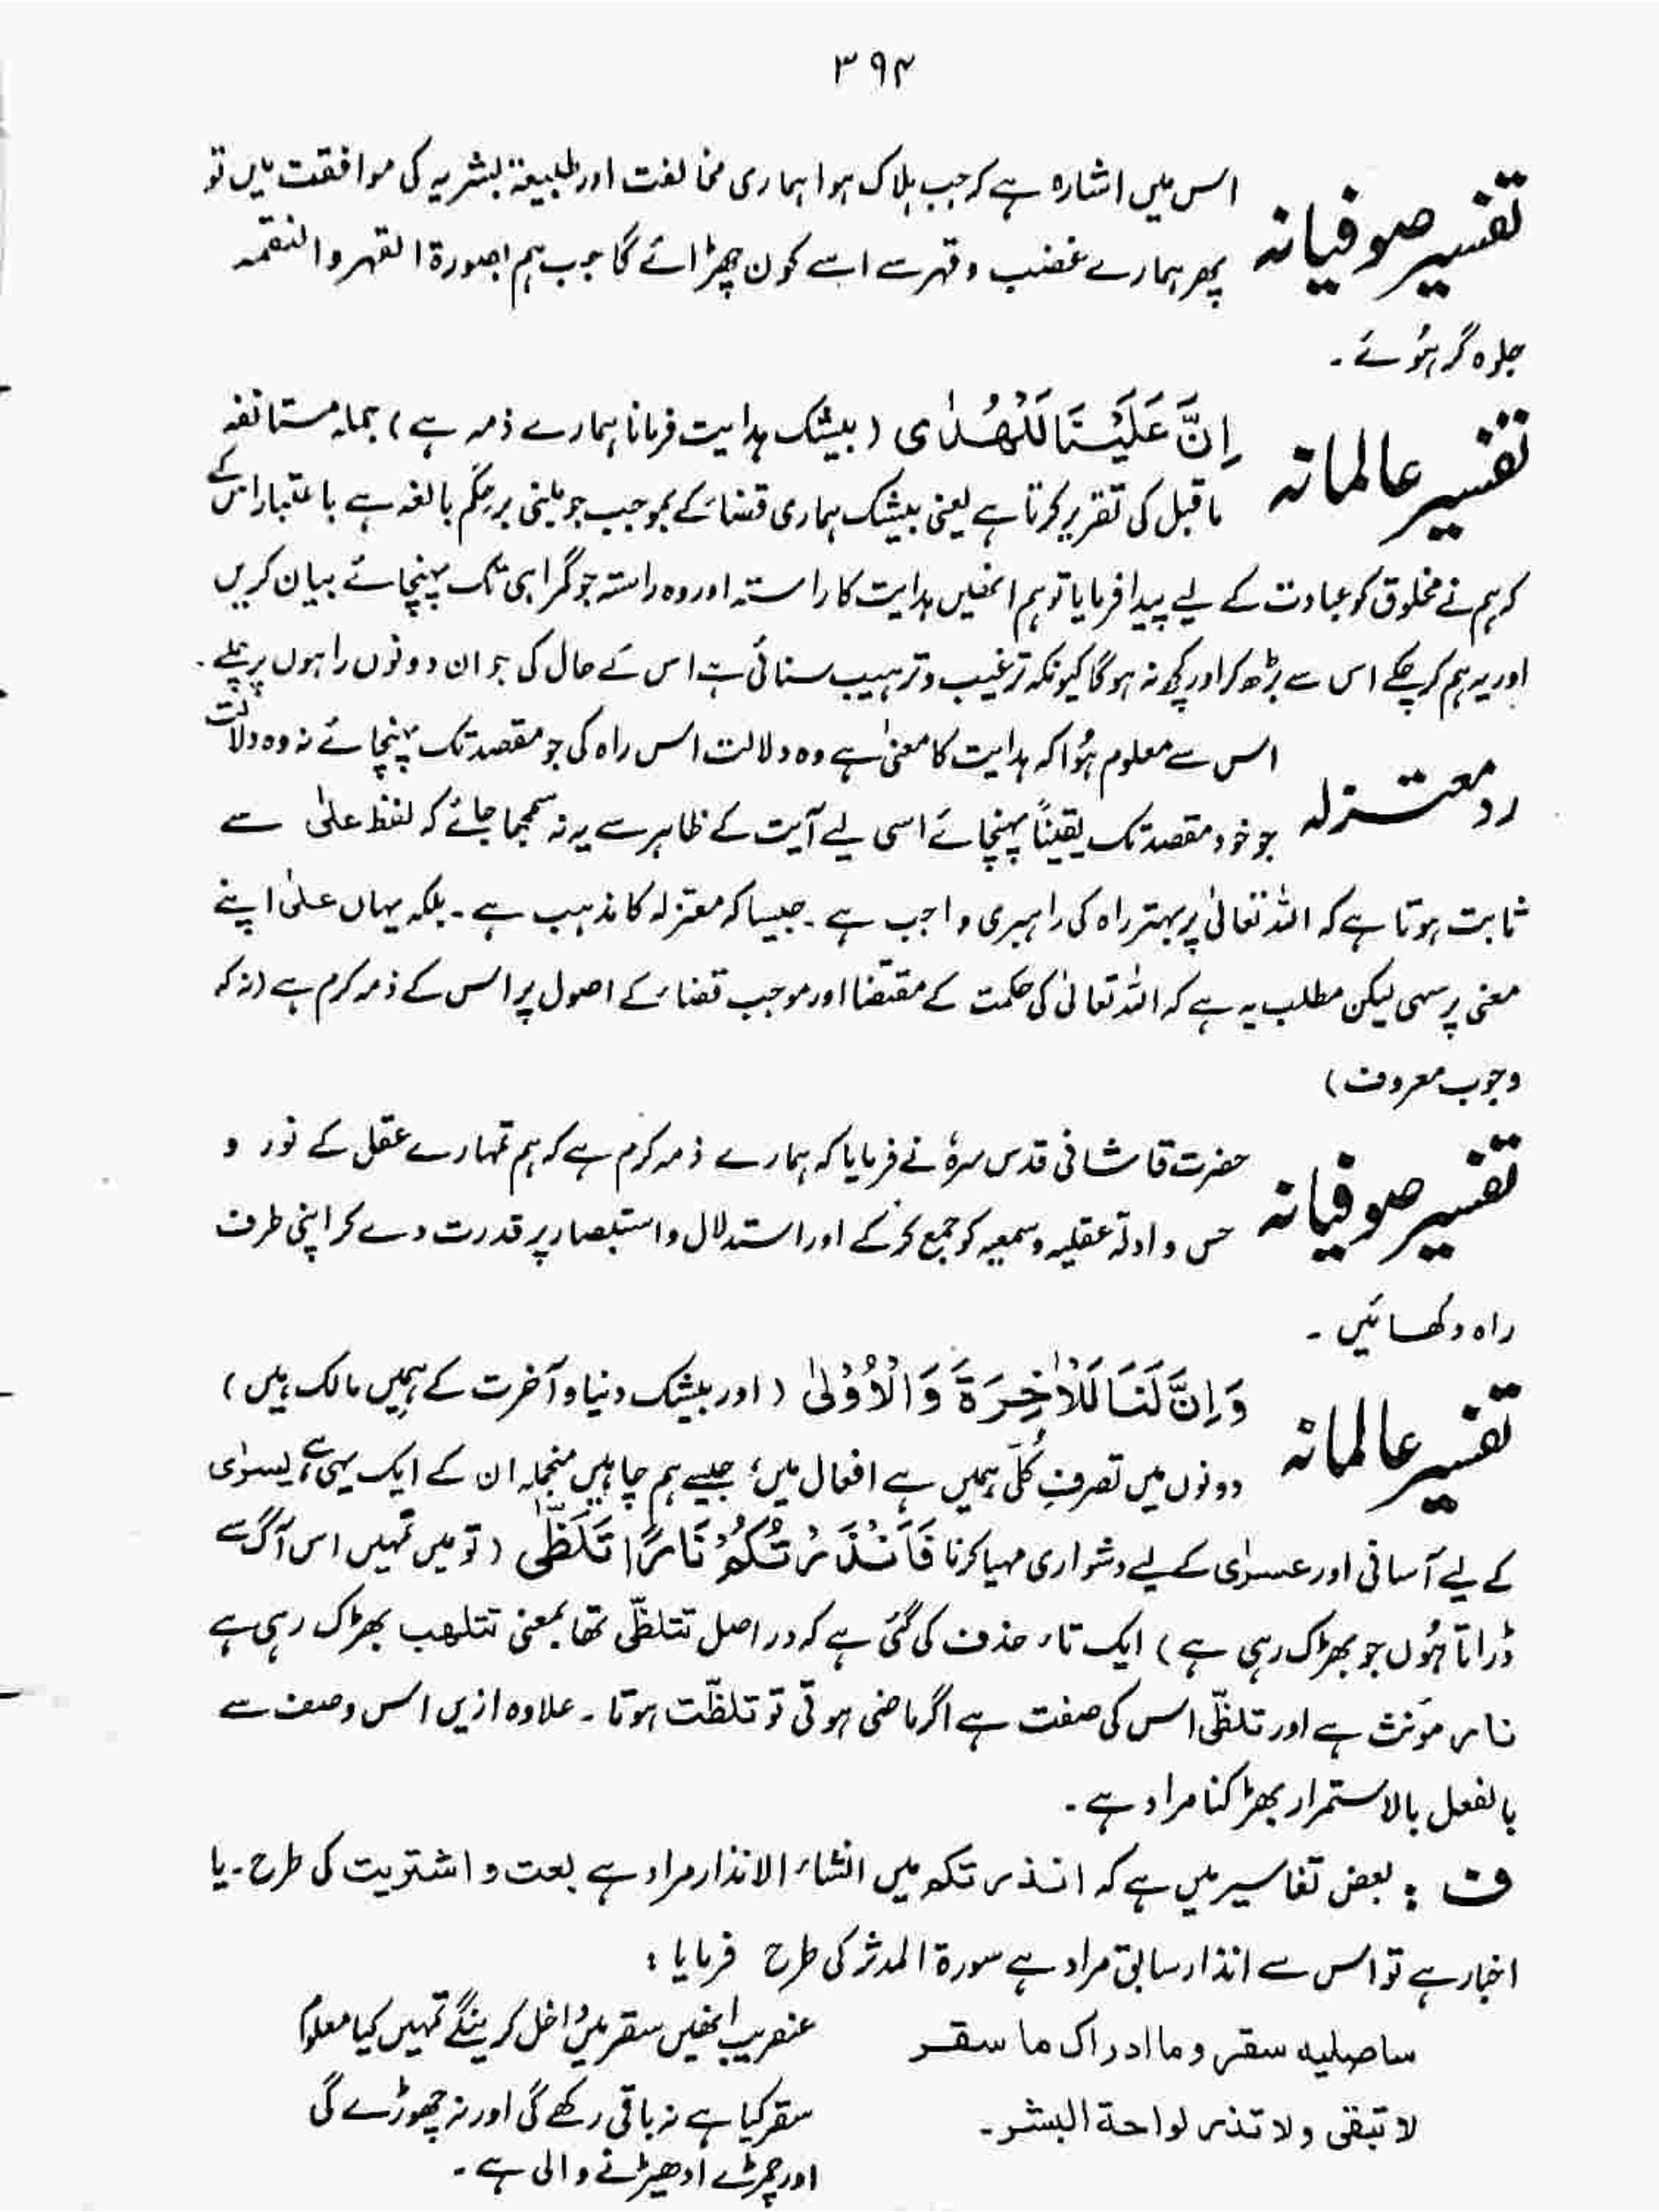 ۳۹۴
تفسیر صوفیانہ
اس میں اشارہ ہے کہ جب ہلاک ہوا ہماری مخالفت اور طبیعۃ بشریہ کی موافقت میں تو
پھر ہمارے غضب و قہر سے اسے کون چھڑائے گا جب ہم بصورۃ القہر و النقمہ
جلوہ گر ہوئے۔
تفسیر عالمانہ
اِنَّ عَلَیْنَا لَلْھُدٰی (بیشک ہدایت فرمانا ہمارے ذمہ ہے) جملہ مستانفہ
ماقبل کی تقریر کرتا ہے یعنی بیشک ہماری قضاء کے بموجب جو مبنی برحکم بالغہ ہے باعتبار اس کے
کہ ہم نے مخلوق کو عبادت کے لیے پیدا فرمایا تو ہم انھیں ہدایت کا راستہ اور وہ راستہ جو گمراہی تک پہنچائے بیان کریں
اور یہ ہم کر چکے اس سے بڑھ کر اور کچھ نہ ہوگا کیونکہ ترغیب و ترہیب سنائی ہے اس کے حال کی جو ان دونوں راہوں پر چلے۔
رد معتزلہ
اس سے معلوم ہوا کہ ہدایت کا معنیٰ ہے وہ دلالت اس راہ کی جو مقصد تک پہنچائے نہ وہ دلالت
جو خود مقصد تک یقیناً پہنچائے اسی لیے آیت کے ظاہر سے یہ نہ سمجھا جائے کہ لفظ علیٰ سے
ثابت ہوتا ہے کہ اللہ تعالیٰ پر بہتر راہ کی راہبری واجب ہے۔ جیسا کہ معتزلہ کا مذہب ہے۔ بلکہ یہاں علیٰ اپنے
معنی پر سہی لیکن مطلب یہ ہے کہ اللہ تعالیٰ کی حکمت کے مقتضا اور موجب قضاء کے اصول پر اس کے ذمہ کرم ہے (نہ کہ
وجوب معروف)
تفسیر صوفیانہ
حضرت قاشانی قدس سرہٗ نے فرمایا کہ ہمارے ذمہ کرم ہے کہ ہم تمہارے عقل کے نور و
حس و ادلۃ عقلیہ و سمعیہ کو جمع کرکے اور استدلال و استبصار پر قدرت دے کر اپنی طرف
راہ دکھائیں۔
تفسیر عالمانہ
وَاِنَّ لَنَا لَلْاٰخِرَۃَ وَالْاُوْلٰی (اور بیشک دنیا و آخرت کے ہمیں مالک ہیں)
دونوں میں تصرفِ کُلّی ہمیں ہے افعال میں، جیسے ہم چاہیں منجملہ ان کے ایک یہی ہے یسرٰی
کے لیے آسانی اور عسرٰی کے لیے دشواری مہیا کرنا فَاَنْذَرْتُکُمْ نَارًا تَلَظّٰی (تو میں تمہیں اس آگ سے
ڈراتا ہوں جو بھڑک رہی ہے) ایک تاء حذف کی گئی ہے کہ دراصل تتلظّی تھا بمعنی تتلھب بھڑک رہی ہے
نار مؤنث ہے اور تلظّی اس کی صفت ہے اگر ماضی ہوتی تو تلظّت ہوتا۔ علاوہ ازیں اس وصف سے
بالفعل بالاستمرار بھڑکنا مراد ہے۔
ف : بعض تفاسیر میں ہے کہ انذرتکم میں انشاء الانذار مراد ہے بعت و اشتریت کی طرح۔ یا
اخبار ہے تو اس سے انذار سابق مراد ہے سورۃ المدثر کی طرح فرمایا :
ساصلیہ سقر و ما ادراک ما سقر
لا تبقی و لا تذر لواحۃ البشر۔
عنقریب انھیں سقر میں داخل کرینگے تمہیں کیا معلوم
سقر کیا ہے نہ باقی رکھے گی اور نہ چھوڑے گی
اور چمڑے اُدھیڑنے والی ہے۔